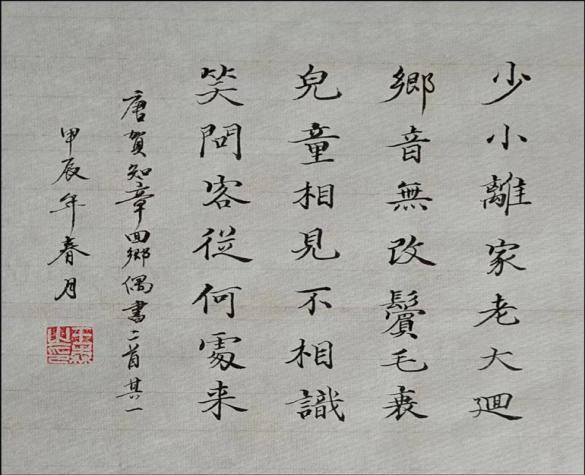 少小離家老大迴
鄉音無改鬢毛衰
兒童相見不相識
笑問客從何處来
唐賀知章回鄉偶書二首其一
甲辰年春月